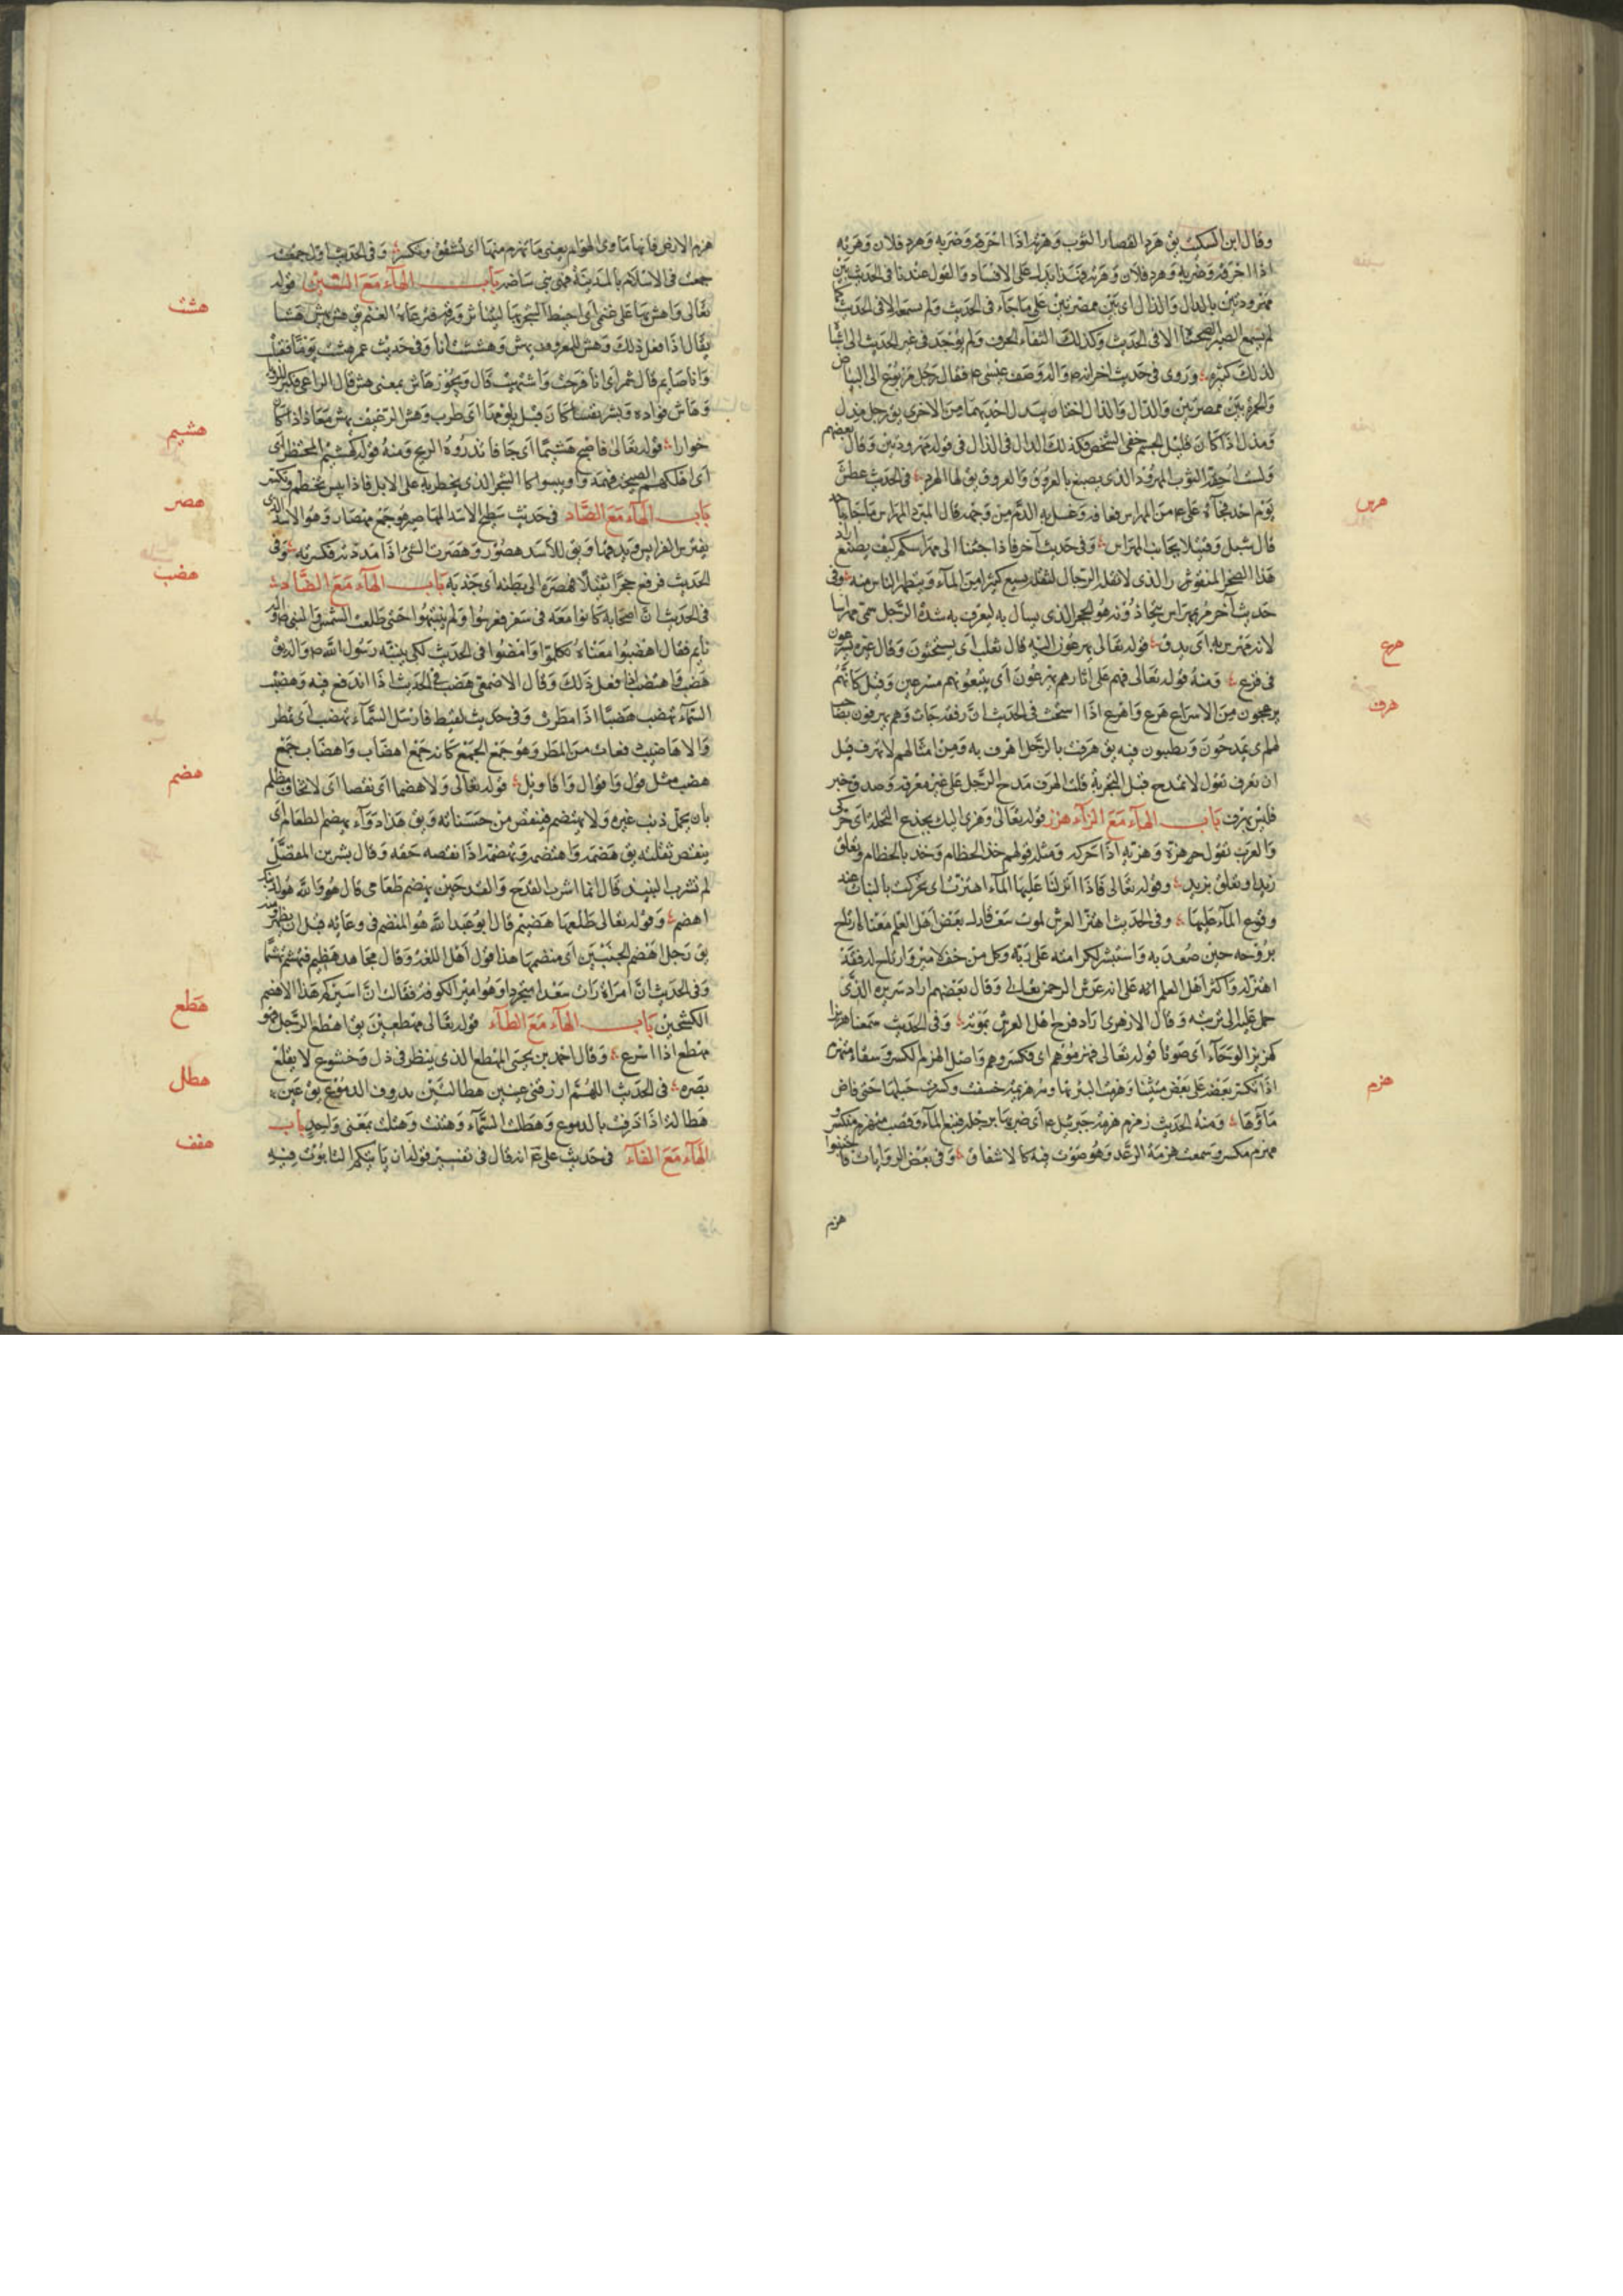 وقال ابن السكيت يق هرد القصار الثوب وهرته اذا اخرقه وضربه وهرد فلان وهرته
اذا اخرقه وضربه وهرد فلان وهرته فهذا يدلك على الافساد والقول عندنا في الحديث بين
مهرودتين بالدال والذال اي بين ممصرتين على ما جاء في الحديث ولم نسمعه الا في الحديث كما
لم نسمع الصير الصحناة الا في الحديث وكذلك الثفاء الحرف ولم يوجد في غير الحديث الى اشيا
لذلك كثيرة وروى في حديث اخر انه ص والد وصف عيسى ع فقال رجل مربوع الى البياض
والحمرة بين ممصرتين والدال والذال اختان يبدل احديهما من الاخرى يق رجل مدل
ومذل اذا كان قليل الجسم خفي الشخص فكذلك الدال في الذال في قوله مهرودتين وقال بعضهم
الثوب المهرود الذي يصبغ بالعروق والعروق يق لها الهرد في الحديث عطش
يوم احد فجاءه على ع من المهراس فعافه وغسل به الدم من وجهه قال المبرد المهراس ماء باحد
قال شبل وقتيلا بجانب المهراس وفي حديث آخر فاذا جئنا الى مهراسكم كيف نصنع
هذا الصخر المنقوش الذي لا يقله الرجال لثقله يسع كثيرا من الماء ويتطهر الناس منه وفي
حديث آخر مر بمهراس يتجاذونه هو الحجر الذي يسال به ليعرف به شدة الرجل سمى مهراسا
لانه يهرس به اي يدق قوله تعالى يهرعون اليه قال ثعلب اي يستحثون وقال غيره يسرعون
في فزع ومنه قوله تعالى فهم على اثارهم يهرعون اي يتبعونهم مسرعين وقيل كانهم
يزعجون من الاسراع هرع واهرع اذا استحث في الحديث ان رفقة جات وهم يهرفون بصاحب
لهم اي يمدحون ويطنبون فيه يق هرفت بالرجل اهرف به ومن امثالهم لا تهرف قبل
ان تعرف تقول لا تمدح قبل التجربة قلت الهرف مدح الرجل على غير معرفة
فليس بهرف باب الهاء مع الزاء هزز قوله تعالى وهزي اليك بجذع النخلة اي حركي
والعرب تقول هزه وهز به اذا حركه ومثله قولهم خذ الخطام وخذ بالخطام وتعلق
زيدا وتعلق بزيد وقوله تعالى فاذا انزلنا عليها الماء اهتزت اي تحركت بالنبات عند
وقوع الماء عليها وفي الحديث اهتز العرش لموت سعد قال بعض اهل العلم معناه ارتاح
بروحه حين صعد به واستبشر لكرامته على ربه وكل من خف لامر وارتاح له فقد
اهتز له واكثر اهل العلم انه على انه عرش الرحمن تعالى وقال بعضهم اراد سريره الذي
حمل عليه الى تربته وقال الازهري اراد فرح اهل العرش بموته وفي الحديث سمعنا هزيزا
كهزيز الرحاء اي صوتا قوله تعالى فهزموهم اي فكسروهم واصل الهزم الكسر وسقاء متهزم
اذا تكسر بعضه على بعض
ماؤها ومنه الحديث زمزم هزمة جبرئيل ع اي ضربها برجله فنبع الماء وقصب متهزم متكسر
مهزم مكسر وسمعت هزمة الرعد وهو صوت فيه كالانشقاق وفي بعض الروايات فاجتنبوا
هزم
هرس
هرع
هرف
هزم
هزم الارض فانها ماوى الهوام يعني ما تهزم منها اي تشقق وتكسر وفي الحديث اول جمعة
جمعت في الاسلام بالمدينة هزم بني بياضه باب الهاء مع الشين قوله
تعالى واهش بها على غنمي اي اخبط الشجر بها ليتناثر ورقه فترعاه الغنم يق هش يهش هشا
يقال اذا فعل ذلك وهش للمعروف يهش وهششت انا وفي حديث عمر هششت يوما فقبلت
وانا صايم قال شمر اي انا فرحت واشتهيت قال ويجوز هاش بمعنى هش قال الراعي فكبر للرؤيا
وهاش فواده وبشر نفسا كان قبل يلومها اي طرب وهش
خوارا قوله تعالى فاصبح هشيما اي جافا تذروه الريح ومنه قوله كهشيم المحتظر اي
باب الهاء مع الصاد في حديث سطيح الاسد المهاصير هو جمع مهصار وهو الاسد الذي
يفترس الفرايس ويدقها ويق للاسد هصور وهصرت الشئ اذا مددته فكسرته وفي
الحديث فرفع حجرا ثقيلا فهصره الى بطنه اي جذبه باب الهاء مع الضاد
في الحديث ان اصحابه كانوا معه في سفر فعرسوا ولم ينتبهوا حتى طلعت الشمس والنبي ص
نايم فقال اهضبوا معناه تكلموا وامضوا في الحديث لكي ينتبه رسول الله ص والد يق
هضب واهتضب اذا فعل ذلك وقال الاصمعي هضب في الحديث اذا اندفع فيه وهضبت
السماء تهضب هضبا اذا مطرت وفي حديث لقيط فارسل السماء تهضب اي تمطر
والاهاضيب دفعات من المطر وهو جمع الجمع كانه جمع اهضاب واهضاب جمع
هضب مثل قول واقوال واقاويل قوله تعالى ولا هضما اي نقصا اي لا يخاف ظلم
بان يحمل ذنب غيره ولا يهتضم فينقص من حسناته ويق هذا دواء يهضم الطعام اي
ينقص ثقلته يق هضمه واهتضمه وتهضمه اذا نقصه حقه وقال بشر بن المفضل
لم نشرب النبيذ قال انما اشرب القدح والقدحين يهضم طعامي قال هو والله لدينك
اهضم وقوله تعالى طلعها هضيم قال ابو عبد الله هو المنضم في وعائه قبل ان يظهر
يق رجل اهضم الجنبين اي منضمهما هذا قول اهل اللغة وقال مجاهد
وفي الحديث ان امراة رات سعدا متجردا وهو امير الكوفة فقالت ان اميركم هذا لاهضم
الكشحين باب الهاء مع الطاء قوله تعالى مهطعين يق اهطع الرجل فهو
مهطع اذا اسرع وقال احمد بن يحيى المهطع الذي ينظر في ذل وخشوع لا يقلع
بصره في الحديث اللهم ارزقني عينين هطالتين بذروف الدموع يق عين
هطالة اذا ذرفت بالدموع وهطلت السماء وهتنت وهتلت بمعنى واحد باب
الهاء مع الفاء في حديث علي ع انه قال في تفسير قوله ان ياتيكم التابوت فيه
هشش
هشيم
هصر
هضب
هضم
هطع
هطل
هفف